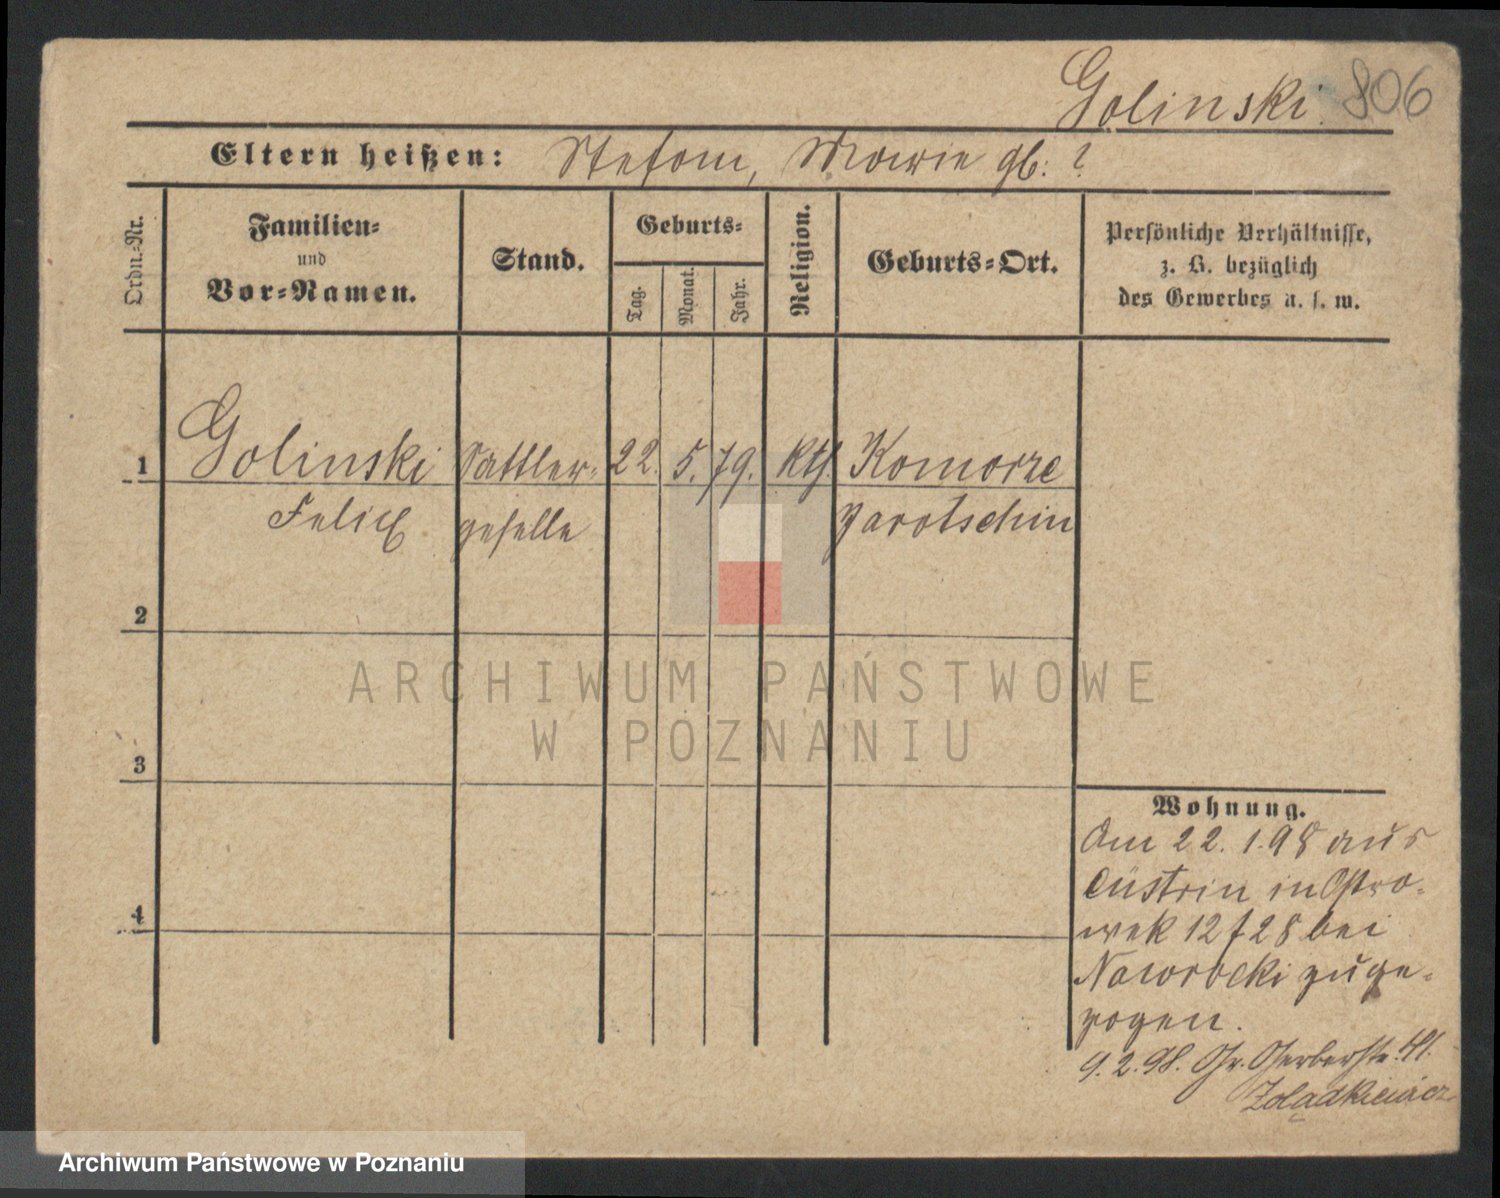 Golinski. 806
Eltern heißen: Stefan, Marie gb: ?
Ordn.-Nr.
Familien-
und
Vor-Namen.
Stand.
Geburts-
Tag.
Monat.
Jahr.
Religion.
Geburts-Ort.
Persönliche Verhältnisse,
z. B. bezüglich
des Gewerbes u. s. w.
1 Golinski Sattler- 22. 5. 79. kth. Komorze
Felix geselle Jarotschin
2
3
4
Wohnung.
Am 22. 1. 98 aus
Cüstrin in Ostro-
wek 12 f 28 bei
Nawrocki zuge-
zogen.
9. 2. 98. Gr. Gerberstr. 41.
Zoladkiewicz
ARCHIWUM PAŃSTWOWE
W POZNANIU
Archiwum Państwowe w Poznaniu